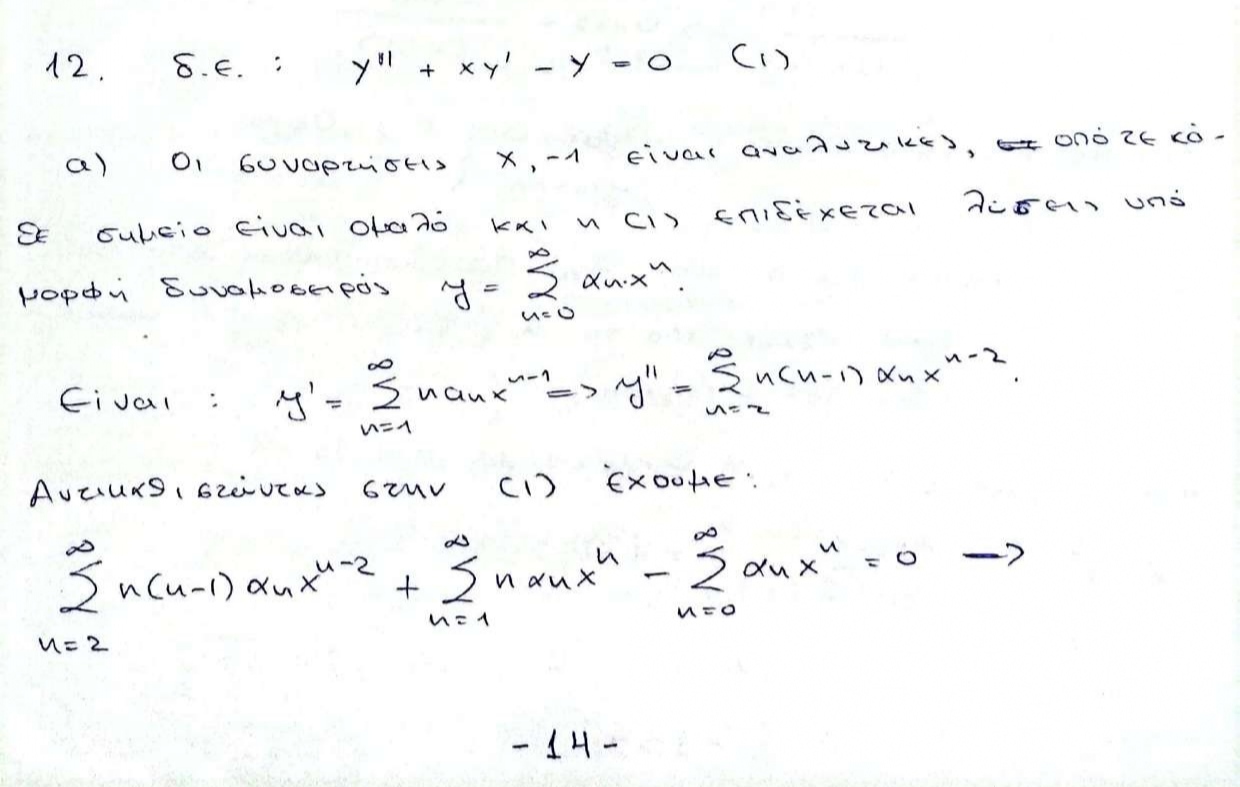 12. δ.ε. : y'' + xy' - y = 0 (1)
α) Οι συναρτήσεις x, -1 είναι αναλυτικές, οπότε κά-
θε σημείο είναι ομαλό και η (1) επιδέχεται λύσεις υπό
μορφή δυναμοσειράς y = ∑_{n=0}^{∞} αn·x^n.
Είναι : y' = ∑_{n=1}^{∞} n αn x^{n-1} => y'' = ∑_{n=2}^{∞} n(n-1) αn x^{n-2}.
Αντικαθιστώντας στην (1) έχουμε:
∑_{n=2}^{∞} n(n-1) αn x^{n-2} + ∑_{n=1}^{∞} n αn x^n - ∑_{n=0}^{∞} αn x^n = 0 →
-14-